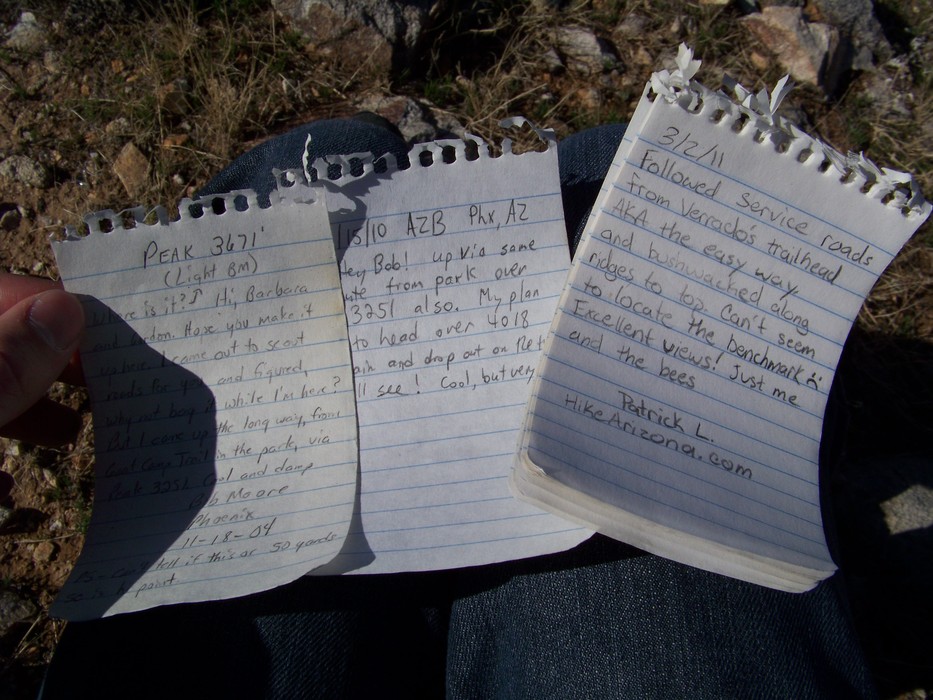 PEAK 3671'
(Light BM)
Where is it? Hi, Barbara
and Gordon. Hope you make it
up here, I came out to scout
roads for you and figured,
why not bag it while I'm here?
But I came up the long way, from
Goat Camp Trail in the park, via
Peak 3251. Cool and damp
Bob Moore
Phoenix
11-18-04
PS - Can't tell if this or 50 yards
is point
15/10 AZB Phx, AZ
Hey Bob! up via same
ute from park over
3251 also. My plan
to head over 4018
ain and drop out on
ll see! Cool, but very
3/2/11
Followed service roads
from Verrado's trailhead
AKA the easy way.
and bushwacked along
ridges to top. Can't seem
to locate the benchmark
Excellent views! Just me
and the bees
Patrick L.
HikeArizona.com